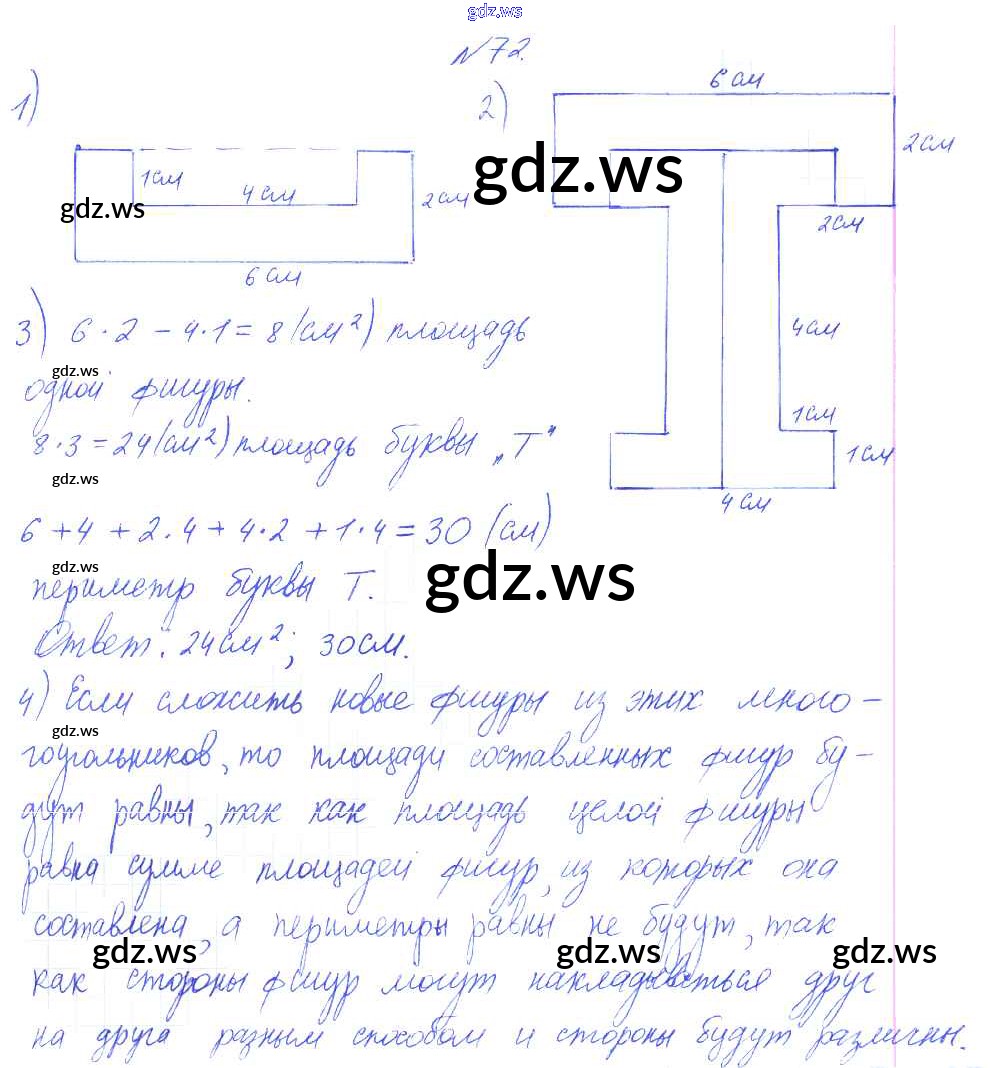 gdz.ws
N72.
1)
2)
6 см
2 см
1 см
4 см
2 см
6 см
gdz.ws
gdz.ws
2 см
4 см
1 см
1 см
4 см
3) 6 · 2 - 4 · 1 = 8 (см²) площадь
gdz.ws
одной фигуры.
8 · 3 = 24 (см²) площадь буквы „Т"
gdz.ws
6 + 4 + 2 · 4 + 4 · 2 + 1 · 4 = 30 (см)
gdz.ws
gdz.ws
периметр буквы Т.
Ответ: 24 см²; 30 см.
4) Если сложить новые фигуры из этих много-
gdz.ws
гоугольников, то площади составленных фигур бу-
дут равны, так как площадь целой фигуры
равна сумме площадей фигур, из которых она
составлена, а периметры равны не будут, так
gdz.ws
gdz.ws
gdz.ws
как стороны фигур могут накладываться друг
на друга разным способом и стороны будут различны.